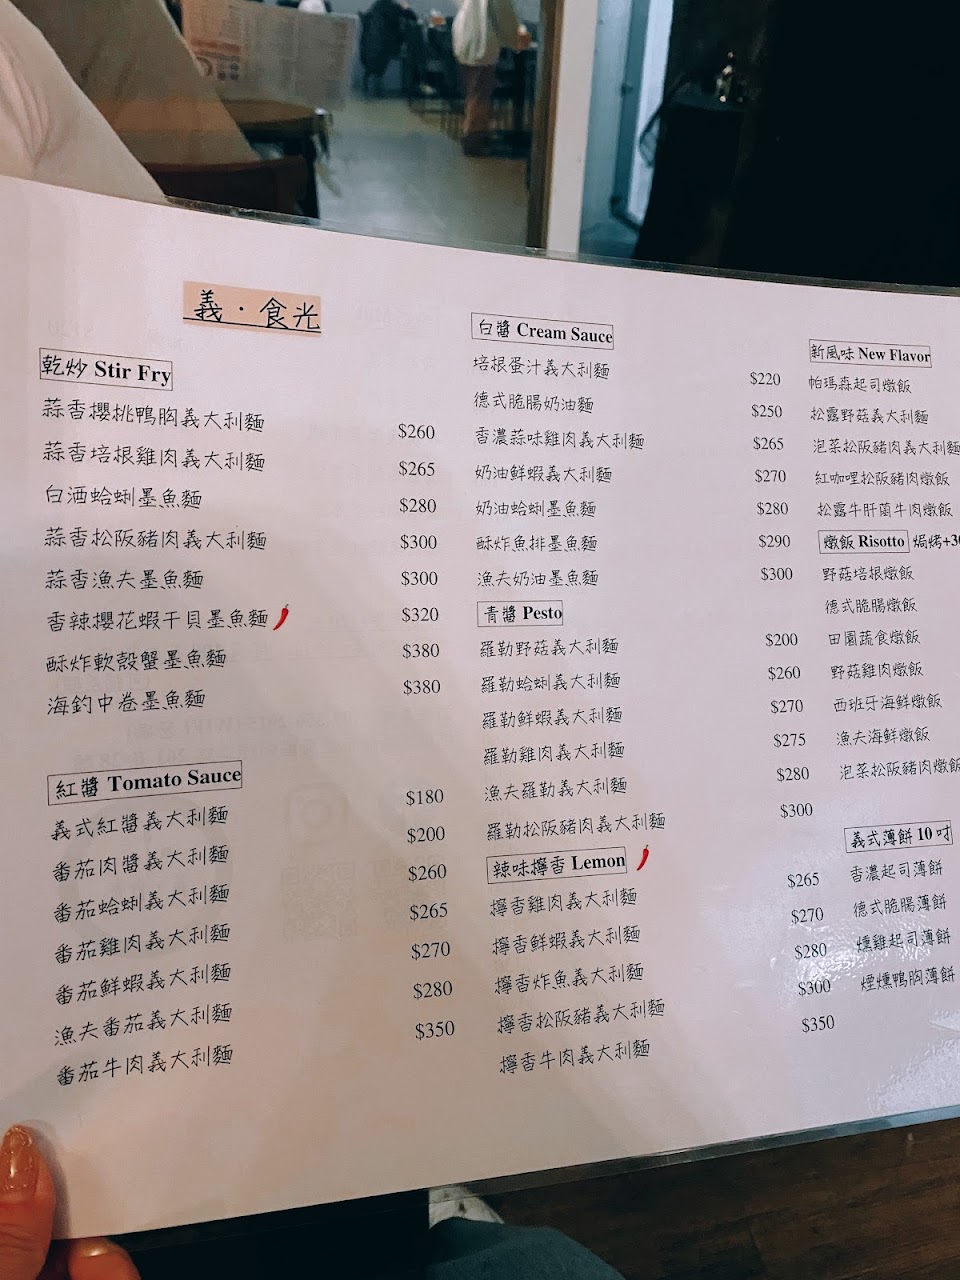 義·食光
乾炒 Stir Fry
蒜香櫻桃鴨胸義大利麵 $260
蒜香培根雞肉義大利麵 $265
白酒蛤蜊墨魚麵 $280
蒜香松阪豬肉義大利麵 $300
蒜香漁夫墨魚麵 $300
香辣櫻花蝦干貝墨魚麵 $320
酥炸軟殼蟹墨魚麵 $380
海釣中卷墨魚麵 $380
紅醬 Tomato Sauce
義式紅醬義大利麵 $180
番茄肉醬義大利麵 $200
番茄蛤蜊義大利麵 $260
番茄雞肉義大利麵 $265
番茄鮮蝦義大利麵 $270
漁夫番茄義大利麵 $280
番茄牛肉義大利麵 $350
白醬 Cream Sauce
培根蛋汁義大利麵 $220
德式脆腸奶油麵 $250
香濃蒜味雞肉義大利麵 $265
奶油鮮蝦義大利麵 $270
奶油蛤蜊墨魚麵 $280
酥炸魚排墨魚麵 $290
漁夫奶油墨魚麵 $300
青醬 Pesto
羅勒野菇義大利麵 $200
羅勒蛤蜊義大利麵 $260
羅勒鮮蝦義大利麵 $270
羅勒雞肉義大利麵 $275
漁夫羅勒義大利麵 $280
羅勒松阪豬肉義大利麵 $300
辣味檸香 Lemon
檸香雞肉義大利麵 $265
檸香鮮蝦義大利麵 $270
檸香炸魚義大利麵 $280
檸香松阪豬義大利麵 $300
檸香牛肉義大利麵 $350
新風味 New Flavor
帕瑪森起司燉飯
松露野菇義大利麵
泡菜松阪豬肉義大利麵
紅咖哩松阪豬肉燉飯
松露牛肝菌牛肉燉飯
燉飯 Risotto 焗烤+30
野菇培根燉飯
德式脆腸燉飯
田園蔬食燉飯
野菇雞肉燉飯
西班牙海鮮燉飯
漁夫海鮮燉飯
泡菜松阪豬肉燉飯
義式薄餅 10 吋
香濃起司薄餅
德式脆腸薄餅
燻雞起司薄餅
煙燻鴨胸薄餅